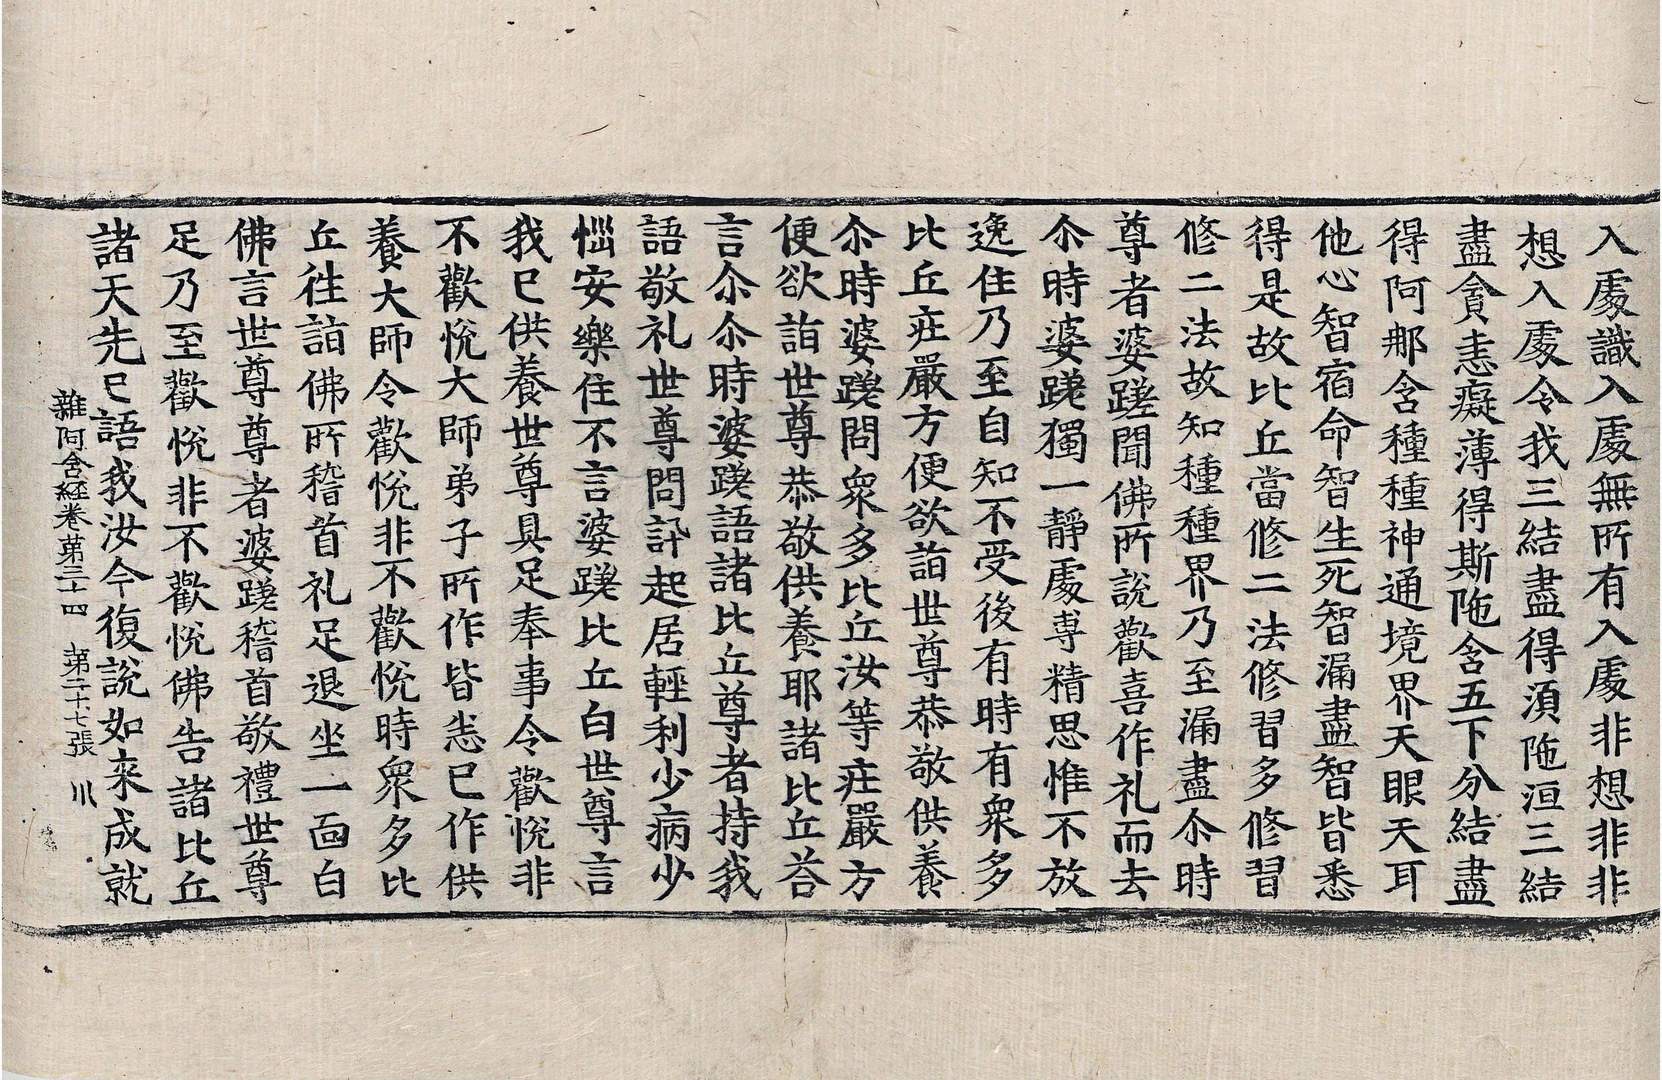 入處識入處無所有入處非想非非
想入處令我三結盡得須陁洹三結
盡貪恚癡薄得斯陁含五下分結盡
得阿那含種種神通境界天眼天耳
他心智宿命智生死智漏盡智皆悉
得是故比丘當修二法修習多修習
修二法故知種種界乃至漏盡尒時
尊者婆蹉聞佛所說歡喜作礼而去
尒時婆蹉獨一靜處專精思惟不放
逸住乃至自知不受後有時有衆多
比丘莊嚴方便欲詣世尊恭敬供養
尒時婆蹉問衆多比丘汝等莊嚴方
便欲詣世尊恭敬供養耶諸比丘荅
言尒尒時婆蹉語諸比丘尊者持我
語敬礼世尊問訊起居輕利少病少
惱安樂住不言婆蹉比丘白世尊言
我已供養世尊具足奉事令歡悅非
不歡悅大師弟子所作皆悉已作供
養大師令歡悅非不歡悅時衆多比
丘往詣佛所稽首礼足退坐一面白
佛言世尊尊者婆蹉稽首敬禮世尊
足乃至歡悅非不歡悅佛告諸比丘
諸天先已語我汝今復說如来成就
雜阿含経卷苐三十四　苐二十七張　川